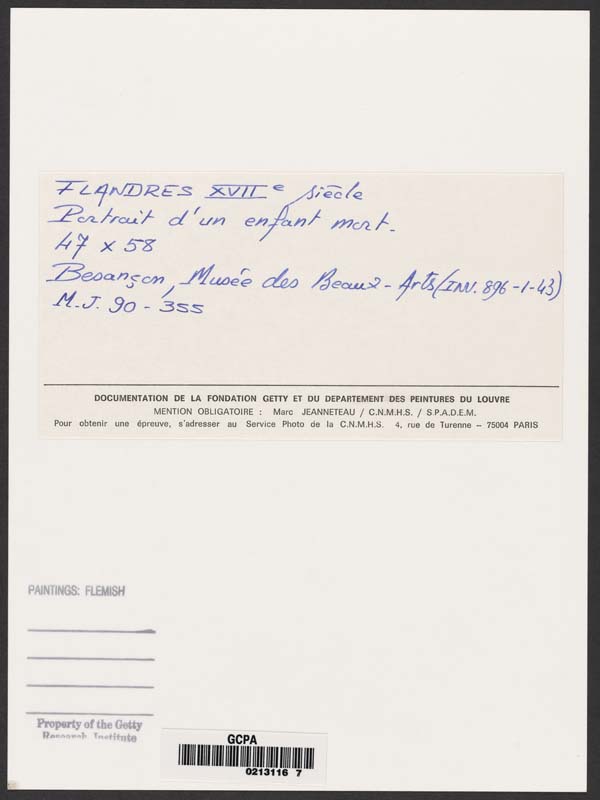 FLANDRES XVIIe siècle
Portrait d'un enfant mort.
47 x 58
Besançon, Musée des Beaux-Arts (INV. 896-1-43)
M.J. 90-355
DOCUMENTATION DE LA FONDATION GETTY ET DU DEPARTEMENT DES PEINTURES DU LOUVRE
MENTION OBLIGATOIRE : Marc JEANNETEAU / C.N.M.H.S. / S.P.A.D.E.M.
Pour obtenir une épreuve, s'adresser au Service Photo de la C.N.M.H.S. 4, rue de Turenne – 75004 PARIS
PAINTINGS: FLEMISH
Property of the Getty
Research Institute
GCPA
0213116 7